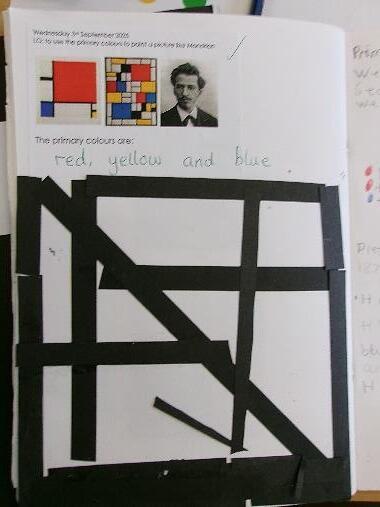 Wednesday 3rd September 2025
LO: to use the primary colours to paint a picture like Mondrian
The primary colours are:
red, yellow and blue